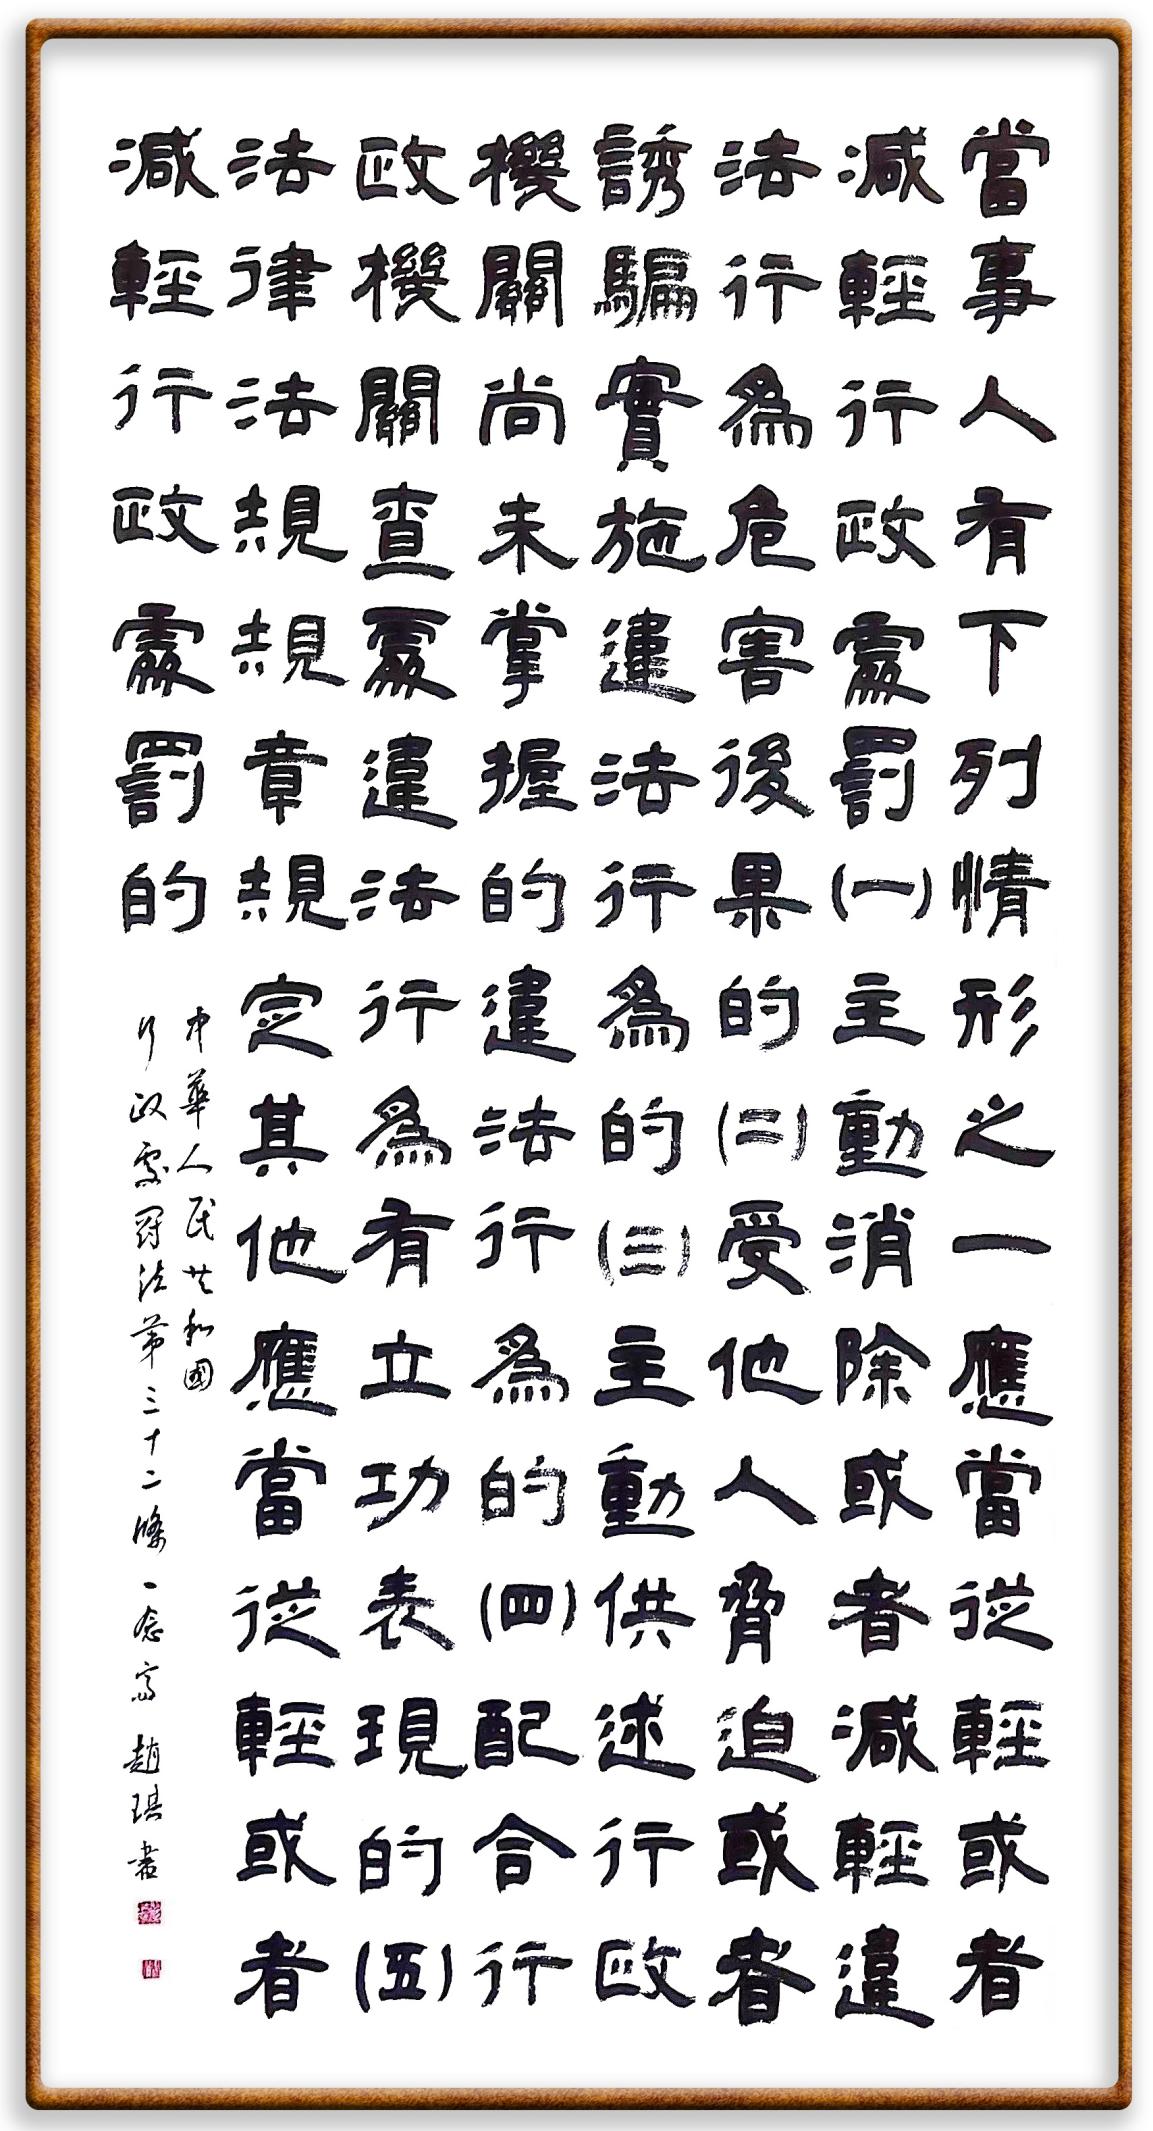 當事人有下列情形之一應當從輕或者
減輕行政處罰(一)主動消除或者減輕違
法行為危害後果的(二)受他人脅迫或者
誘騙實施違法行為的(三)主動供述行政
機關尚未掌握的違法行為的(四)配合行
政機關查處違法行為有立功表現的(五)
法律法規規章規定其他應當從輕或者
減輕行政處罰的
中華人民共和國
行政處罰法第三十二條 一念寫 趙琪書